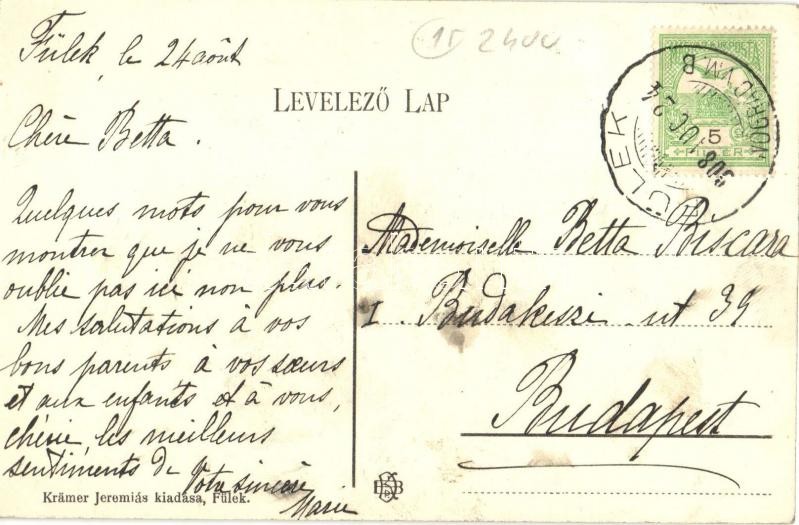 Fülek, le 24 août
1D 2400
LEVELEZŐ LAP
Chère Betta.
Quelques mots pour vous
montrer que je ne vous
oublie pas ici non plus.
Mes salutations à vos
bons parents à vos sœurs
et aux enfants et à vous,
chérie, les meilleurs
sentiments de Votre sincère
Marie
Mademoiselle Betta Biscara
I. Budakeszi ut 39
Budapest
MAGY. KIR. POSTA
5
FILLÉR
FÜLEK
NÓGRÁD VM
B
908 AUG 24
Krämer Jeremiás kiadása, Fülek.